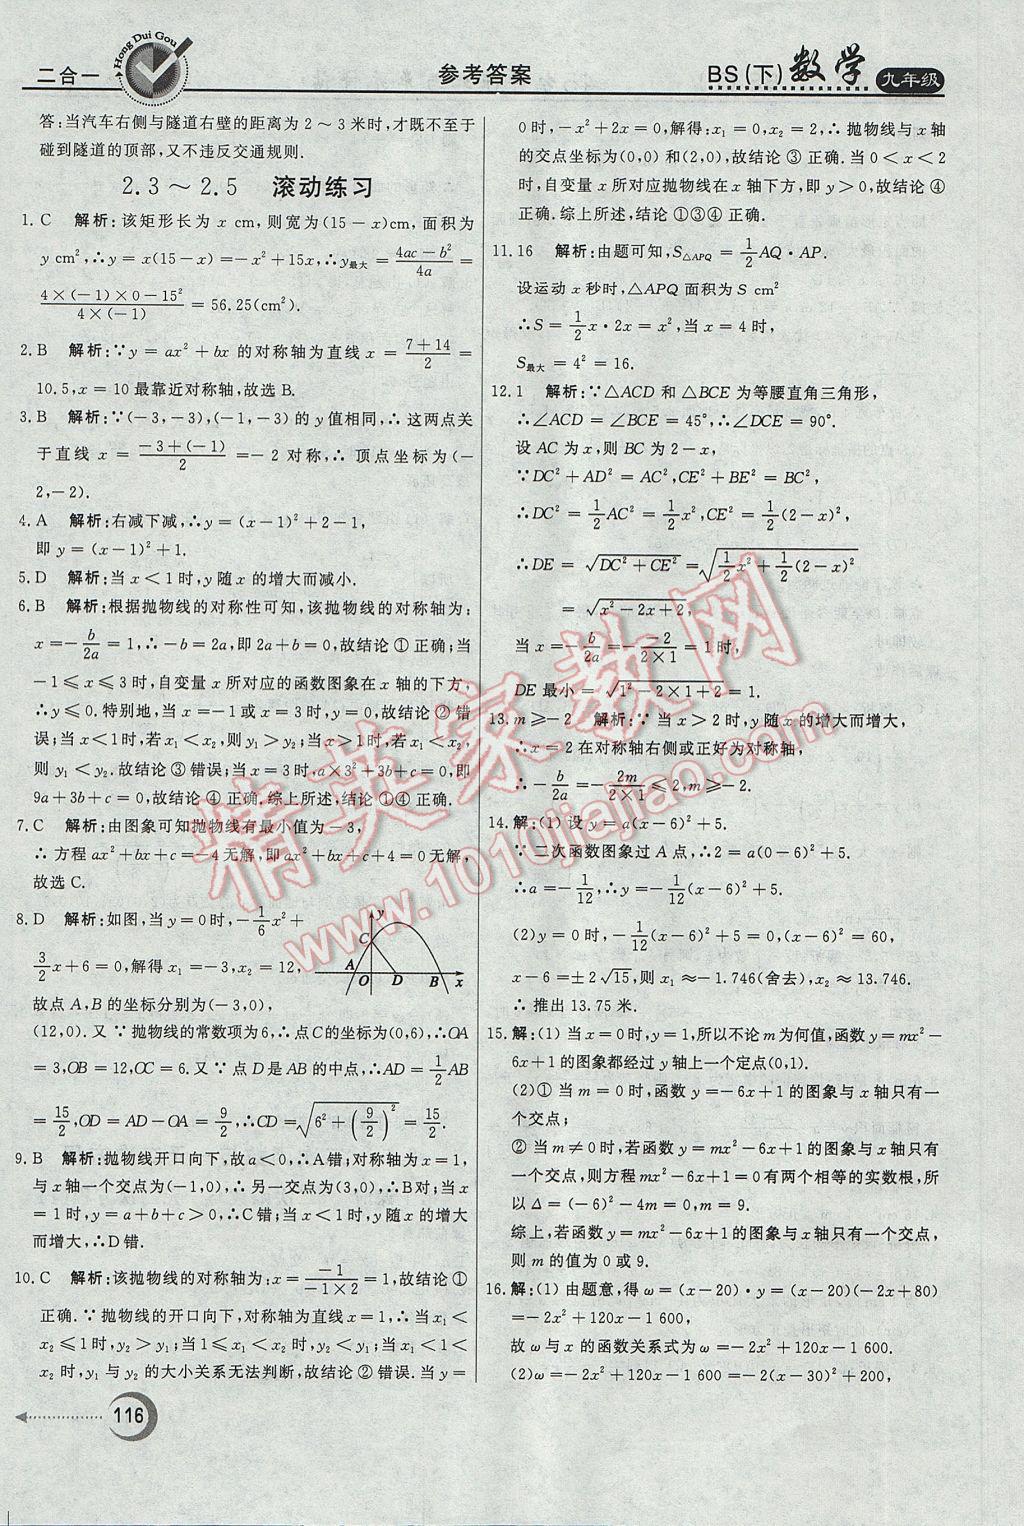 二合一
Hong Dui Gou
参考答案
BS(下) 数学 九年级
答:当汽车右侧与隧道右壁的距离为 2～3 米时,才既不至于
碰到隧道的顶部,又不违反交通规则.
2.3～2.5 滚动练习
1. C 解析:该矩形长为 x cm,则宽为(15－x)cm,面积为
y cm²,∴y＝x(15－x)＝－x²＋15x,∴y最大＝(4ac－b²)/4a＝
(4×(－1)×0－15²)/(4×(－1))＝56.25(cm²).
2. B 解析:∵y＝ax²＋bx 的对称轴为直线 x＝(7＋14)/2＝
10.5,x＝10 最靠近对称轴,故选 B.
3. B 解析:∵(－3,－3),(－1,－3)的 y 值相同,∴这两点关
于直线 x＝(－3＋(－1))/2＝－2 对称,∴顶点坐标为(－
2,－2).
4. A 解析:右减下减,∴y＝(x－1)²＋2－1,
即 y＝(x－1)²＋1.
5. D 解析:当 x＜1 时,y 随 x 的增大而减小.
6. B 解析:根据抛物线的对称性可知,该抛物线的对称轴为:
x＝－b/2a＝1,∴－b＝2a,即 2a＋b＝0,故结论 ① 正确;当
－1≤x≤3 时,自变量 x 所对应的函数图象在 x 轴的下方,
∴y≤0.特别地,当 x＝－1 或 x＝3 时,y＝0,故结论 ② 错
误;当 x＜1 时,若 x₁＜x₂,则 y₁＞y₂;当 x＞1 时,若 x₁＜x₂,
则 y₁＜y₂.故结论 ③ 错误;当 x＝3 时,a×3²＋3b＋c＝0,即
9a＋3b＋c＝0,故结论 ④ 正确.综上所述,结论 ①④ 正确.
7. C 解析:由图象可知抛物线有最小值为－3,
∴方程 ax²＋bx＋c＝－4 无解,即 ax²＋bx＋c＋4＝0 无解,
故选 C.
8. D 解析:如图,当 y＝0 时,－1/6 x²＋
3/2 x＋6＝0,解得 x₁＝－3,x₂＝12,
故点 A,B 的坐标分别为(－3,0),
y
C
A O D B x
(12,0).又∵抛物线的常数项为 6,∴点 C 的坐标为(0,6),∴OA
＝3,OB＝12,OC＝6.又∵点 D 是 AB 的中点,∴AD＝1/2 AB
＝15/2,OD＝AD－OA＝9/2,∴CD＝√(6²＋(9/2)²)＝15/2.
9. B 解析:抛物线开口向下,故 a＜0,∴A 错;对称轴为 x＝1,
与 x 轴一个交点为(－1,0),∴另一交点为(3,0),∴B 对;当 x
＝1 时,y＝a＋b＋c＞0,∴C 错;当 x＜1 时,y 随 x 的增大
而增大,∴D 错.
10. C 解析:该抛物线的对称轴为:x＝－1/(－1×2)＝1,故结论 ①
正确.∵抛物线的开口向下,对称轴为直线 x＝1,∴当 x₁＜
x₂≤1 时,y₂＞y₁;当 1≤x₁＜x₂ 时,y₂＜y₁;当 x₁＜1＜
x₂ 时,y₁ 与 y₂ 的大小关系无法判断,故结论 ② 错误.当 y＝
0 时,－x²＋2x＝0,解得:x₁＝0,x₂＝2,∴抛物线与 x 轴
的交点坐标为(0,0)和(2,0),故结论 ③ 正确.当 0＜x＜2
时,自变量 x 所对应抛物线在 x 轴下方,即 y＞0,故结论 ④
正确.综上所述,结论 ①③④ 正确.
11. 16 解析:由题可知,S△APQ＝1/2 AQ·AP.
设运动 x 秒时,△APQ 面积为 S cm²
∴S＝1/2 x·2x＝x²,当 x＝4 时,
S最大＝4²＝16.
12. 1 解析:∵△ACD 和△BCE 为等腰直角三角形,
∴∠ACD＝∠BCE＝45°,∴∠DCE＝90°.
设 AC 为 x,则 BC 为 2－x,
∵DC²＋AD²＝AC²,CE²＋BE²＝BC²,
∴DC²＝1/2 AC²＝1/2 x²,CE²＝1/2 (2－x)²,
∴DE＝√(DC²＋CE²)＝√(1/2 x²＋1/2 (2－x)²)
＝√(x²－2x＋2),
当 x＝－b/2a＝－(－2)/(2×1)＝1 时,
DE最小＝√(1²－2×1＋2)＝1.
13. m≥－2 解析:∵当 x＞2 时,y 随 x 的增大而增大,
∴x＝2 在对称轴右侧或正好为对称轴,
∴－b/2a＝－2m/(2×1)≤2,m≥－2.
14. 解:(1)设 y＝a(x－6)²＋5.
∵二次函数图象过 A 点,∴2＝a(0－6)²＋5.
∴a＝－1/12,∴y＝－1/12 (x－6)²＋5.
(2)y＝0 时,－1/12 (x－6)²＋5＝0,(x－6)²＝60,
x－6＝±2√15,则 x₁≈－1.746(舍去),x₂≈13.746.
∴推出 13.75 米.
15. 解:(1)当 x＝0 时,y＝1,所以不论 m 为何值,函数 y＝mx²－
6x＋1 的图象都经过 y 轴上一个定点(0,1).
(2)① 当 m＝0 时,函数 y＝－6x＋1 的图象与 x 轴只有一
个交点;
② 当 m≠0 时,若函数 y＝mx²－6x＋1 的图象与 x 轴只有
一个交点,则方程 mx²－6x＋1＝0 有两个相等的实数根,所
以 Δ＝(－6)²－4m＝0,m＝9.
综上,若函数 y＝mx²－6x＋1 的图象与 x 轴只有一个交点,
则 m 的值为 0 或 9.
16. 解:(1)由题意,得 ω＝(x－20)·y＝(x－20)(－2x＋80)
＝－2x²＋120x－1 600,
故 ω 与 x 的函数关系式为 ω＝－2x²＋120x－1 600.
(2)ω＝－2x²＋120x－1 600＝－2(x－30)²＋200,
116
精英家教网
www.1010jiajiao.com